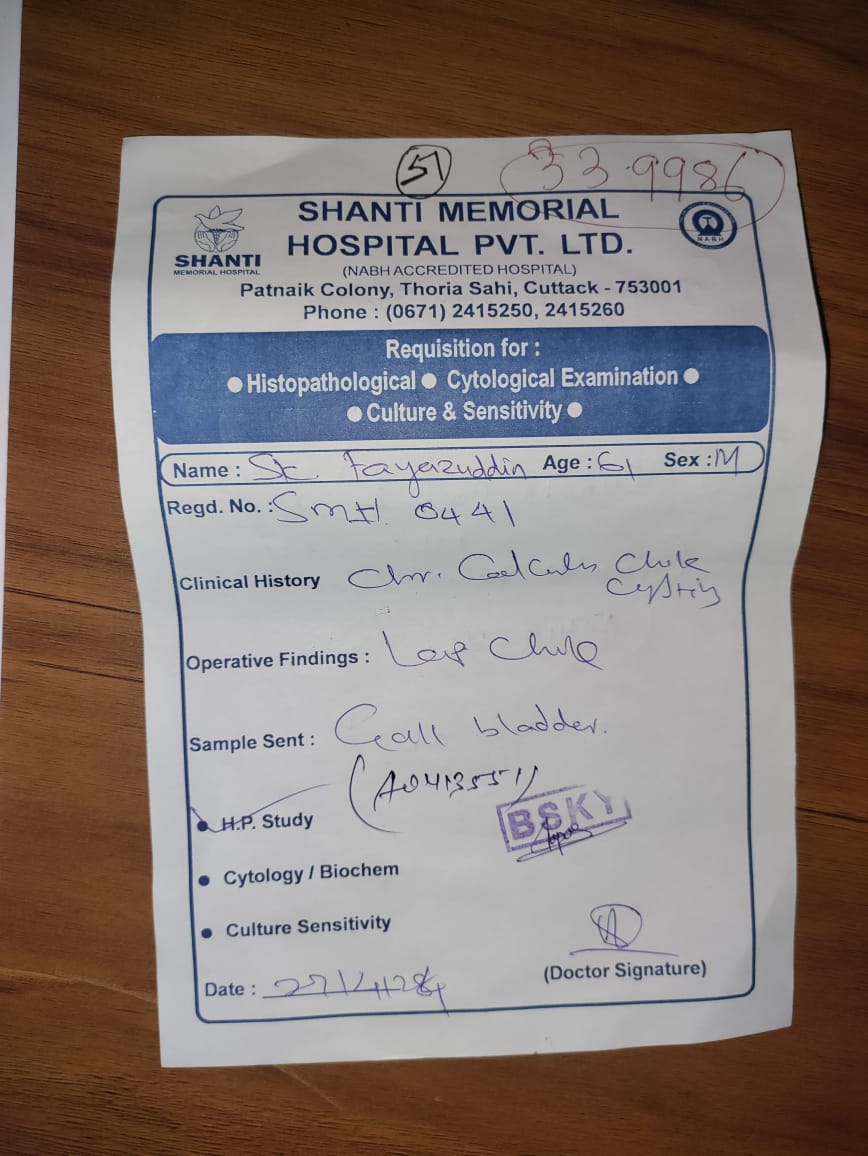 51
33.9986
SHANTI MEMORIAL
HOSPITAL PVT. LTD.
SHANTI
MEMORIAL HOSPITAL
NABH
(NABH ACCREDITED HOSPITAL)
Patnaik Colony, Thoria Sahi, Cuttack - 753001
Phone : (0671) 2415250, 2415260
Requisition for :
● Histopathological ● Cytological Examination ●
● Culture & Sensitivity ●
Name : Sk. Fayazuddin Age : 61 Sex : M
Regd. No. : SMH. 0441
Clinical History Chr. Calculus Chole
Cystitis
Operative Findings : Lap Chole
Sample Sent : Gall bladder.
(A0413551)
● H.P. Study
BSKY
● Cytology / Biochem
● Culture Sensitivity
(Doctor Signature)
Date : 27/4/24